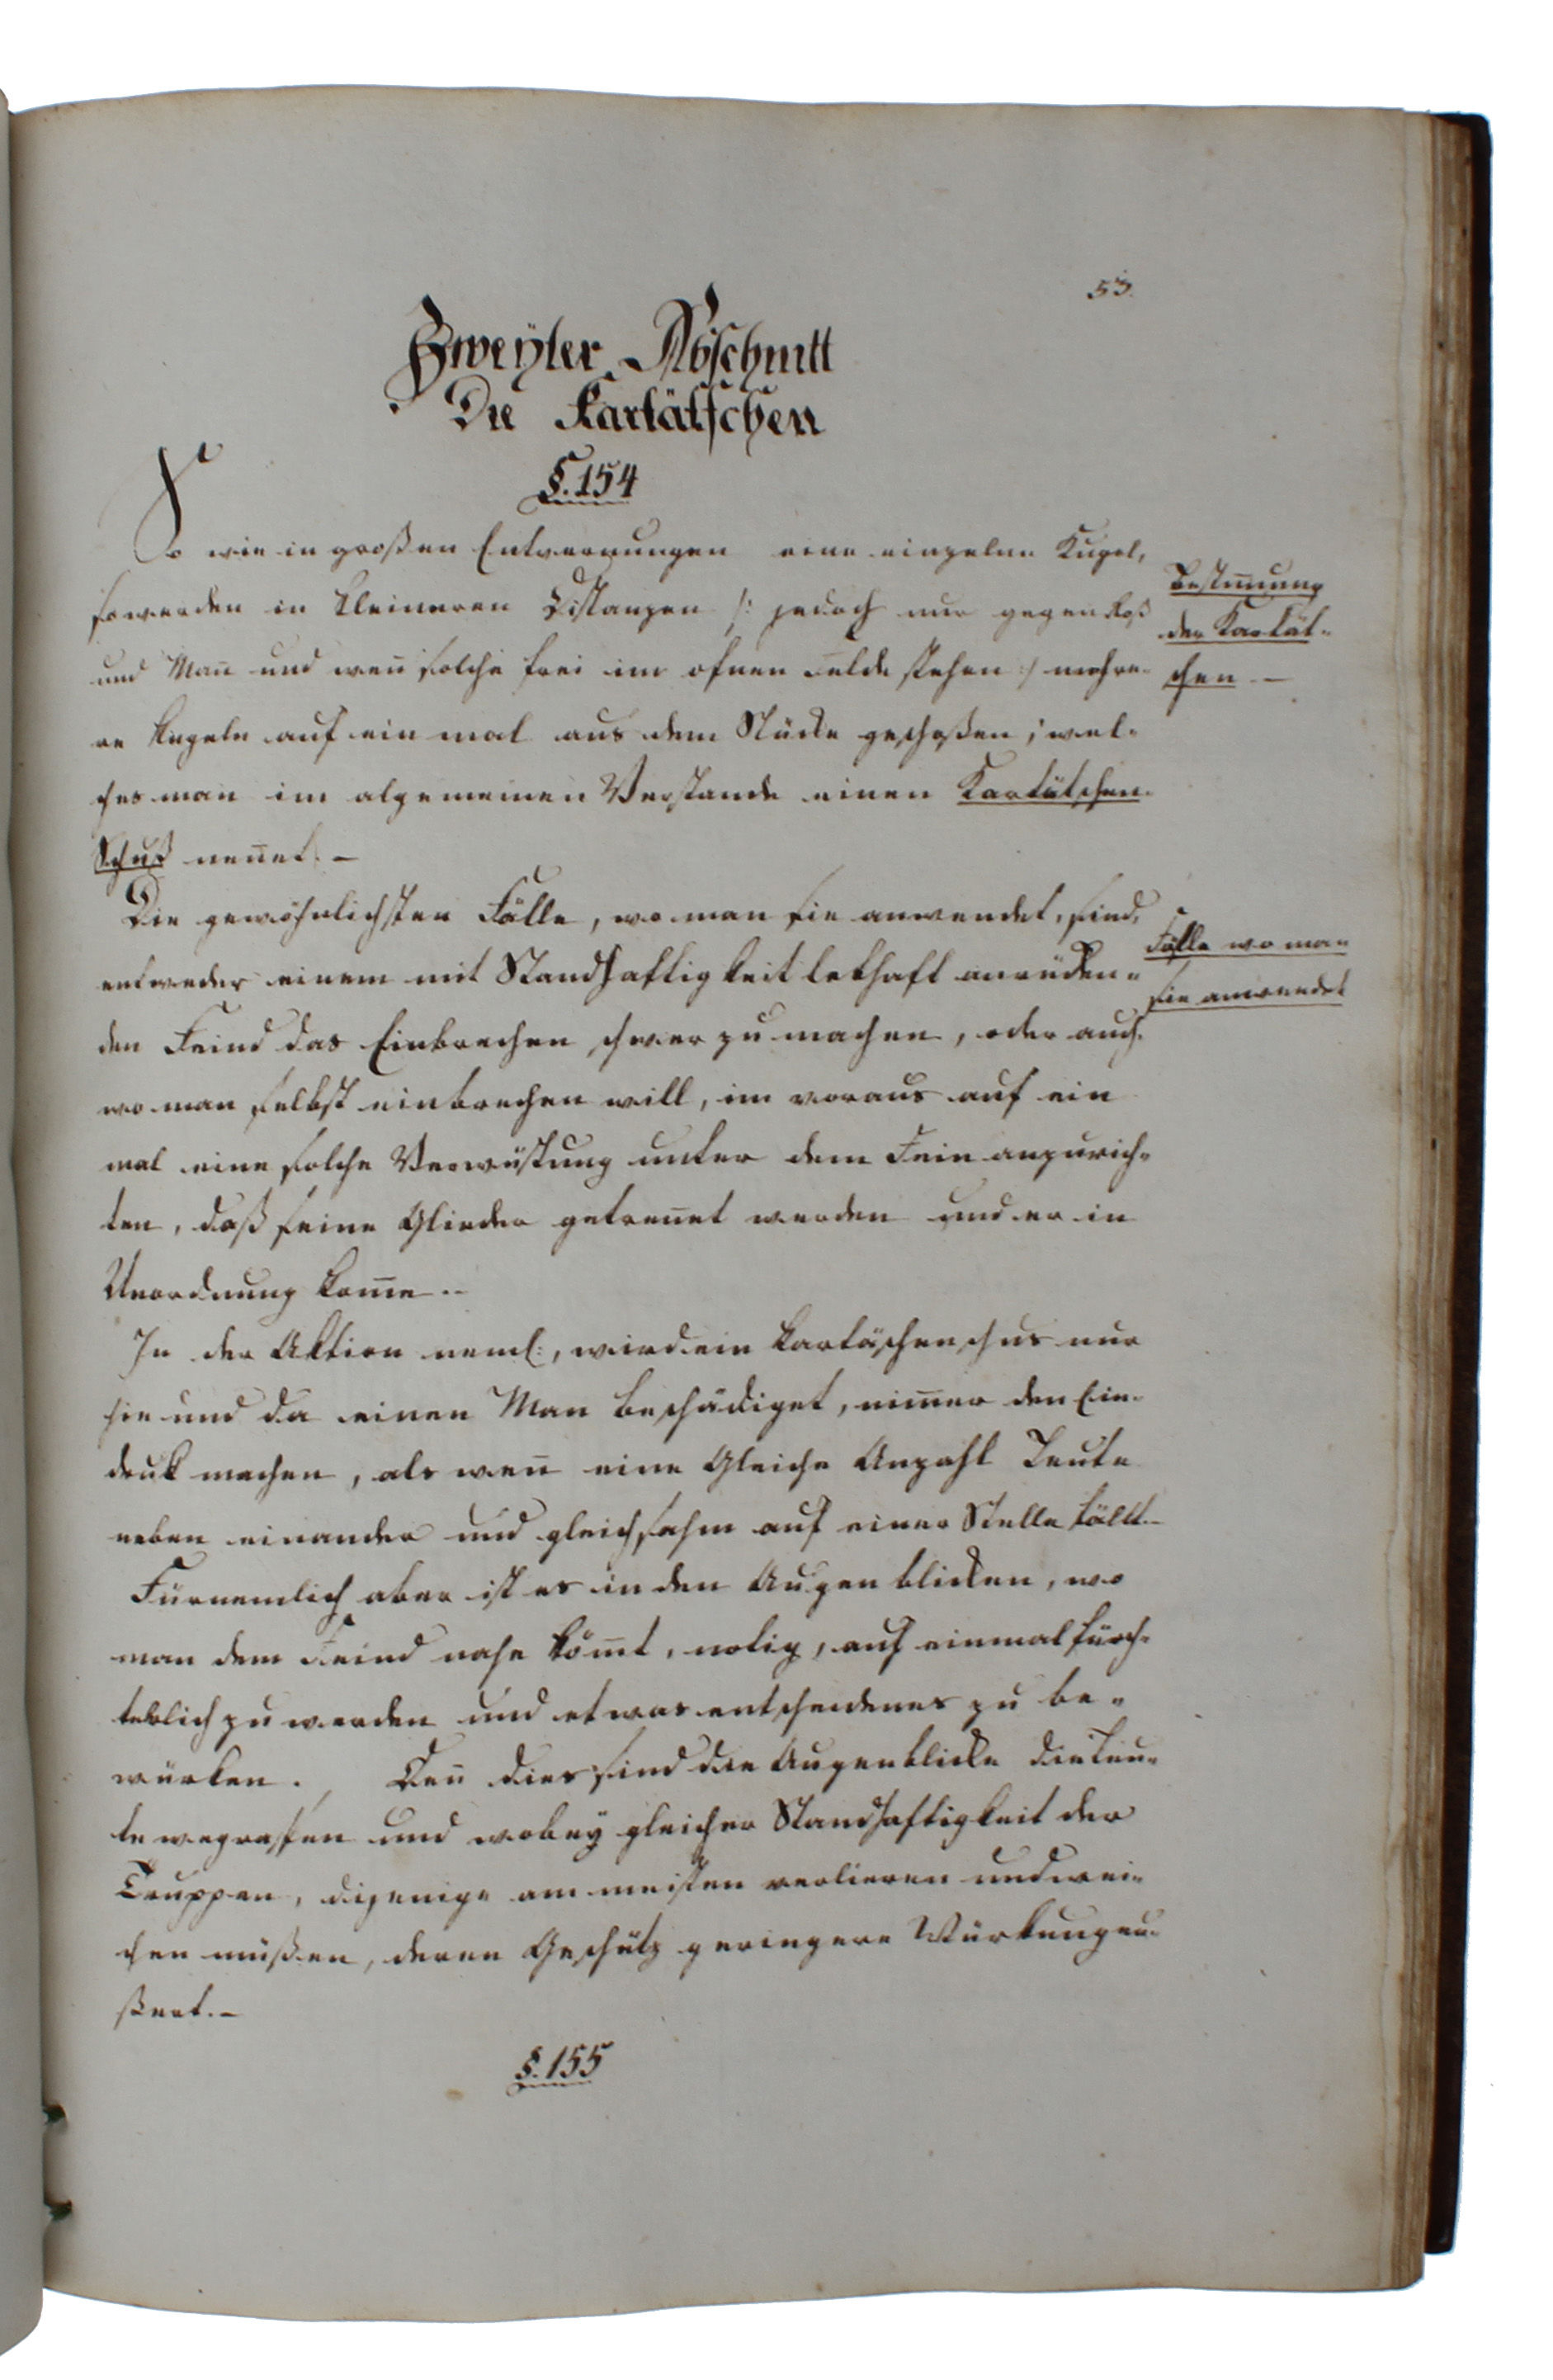 53.
Zweyter Abschnitt
Die Kartätschen
§. 154
So wie in großen Entvernungen eine einzelne Kugel,
so werden in kleineren Distanzen /: jedoch nur gegen Roß
und Man̄ und wen̄ solche frei im ofnen Felde stehen :/ mehre-
re Kugeln auf ein mal aus dem Stücke geschoßen; wel-
ches man im algemeinen Verstande einen Kartätschen-
Schuß nen̄et. –
Bestim̄ung
der Kartät-
schen –
Die gewöhnlichsten Fälle, wo man sie anwendet, sind,
entweder einem mit Standhaftigkeit lebhaft anrüken-
den Feind das Einbrechen schwer zu machen, oder auch.
wo man selbst einbrechen will, im voraus auf ein
mal eine solche Verwüstung unter dem Fein anzurich-
ten, daß seine Glieder getren̄et werden und er in
Unordnung kom̄e. –
Fälle wo man
sie anwendet
In der Aktion neml:, wird ein Kartäschenschus nur
hie und da einen Man beschädiget, nim̄er den Ein-
druk machen, als wen̄ eine Gleiche Anzahl Leute
neben einander und gleichsahm auf einer Stelle fällt. –
Fürnemlich aber ist es in den Augenblicken, wo
man dem Feind nahe köm̄t, notig, auf einmal fürch-
terlich zu werden und etwas entscheidenes zu be-
würken. Den̄ dies sind die Augenblicke die Leu-
te wegraffen und wobey gleicher Standhaftigkeit der
Truppen, dijenige am meisten verlieren und wei-
chen müßen, deren Geschütz geringere Würkung eu-
ßert. –
§. 155